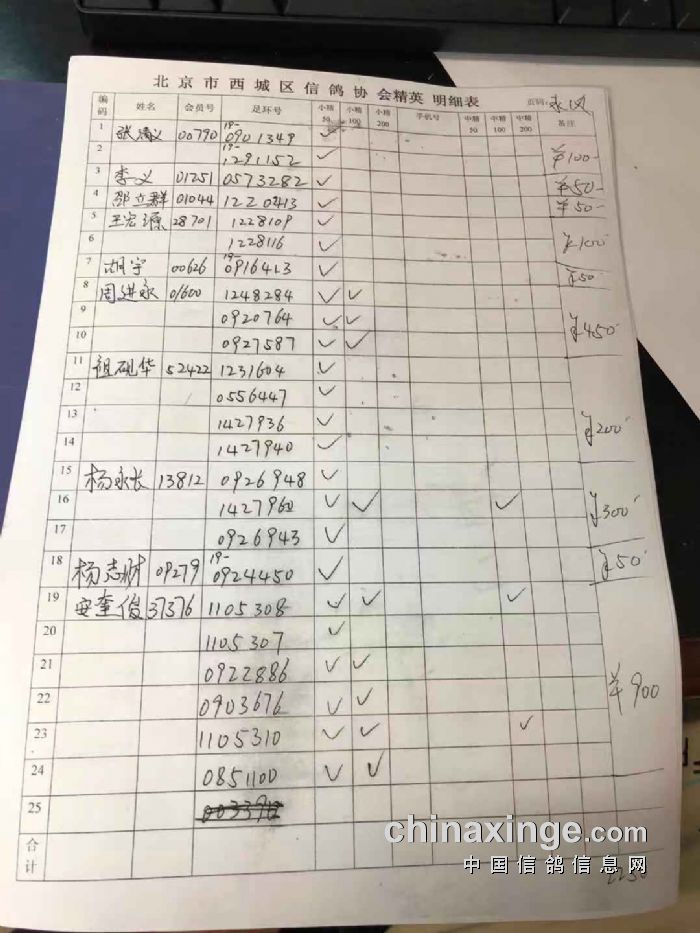 北京市西城区信鸽协会精英 明细表 页码:
编码 姓名 会员号 足环号 小精50 小精100 小精200 手机号 中精50 中精100 中精200 备注
1 张清义 00790 19-0901349 ✓
2 19-1291152 ✓ ¥100-
3 李义 01251 0573282 ✓ ¥50-
4 邵立群 01044 1220413 ✓ ¥50-
5 王宏源 28701 1228109 ✓
6 1228116 ✓ ¥100
7 胡宇 00626 19-0916413 ✓ ¥50
8 周进永 01600 1248284 ✓ ✓
9 0920764 ✓ ✓ ¥450
10 0927587 ✓ ✓
11 祖砚华 52422 1231604 ✓
12 0556447 ✓
13 1427936 ✓ ¥200
14 1427940 ✓
15 杨永长 13812 0926948 ✓
16 1427960 ✓ ✓ ✓ ¥300
17 0926943 ✓
18 杨志财 09279 19-0924450 ✓ ¥50
19 安奎俊 37376 1105308 ✓ ✓ ✓
20 1105307 ✓
21 0922886 ✓ ✓
22 0903676 ✓ ✓ ¥900
23 1105310 ✓ ✓ ✓
24 0851100 ✓ ✓
25
合计 2250
chinaxinge.com
中国信鸽信息网